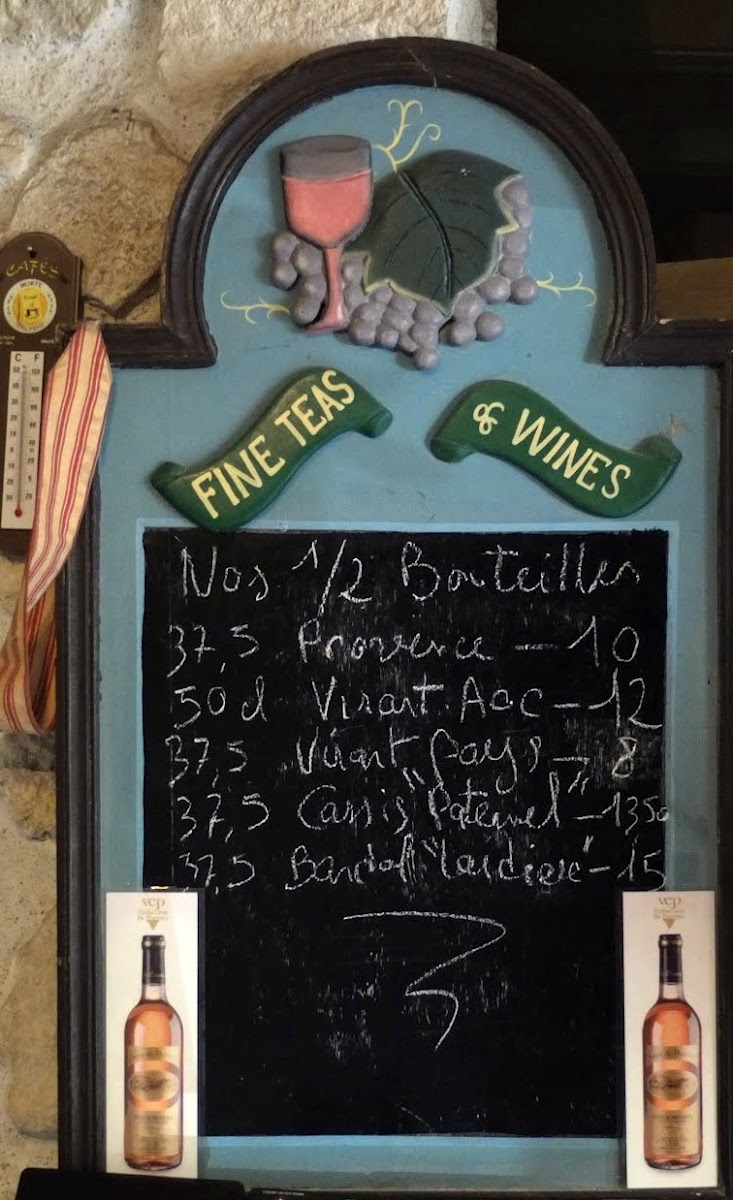 CAFÉS
C F
FINE TEAS
& WINES
Nos 1/2 Bouteilles
37,5 Provence - 10
50 d Virant Aoc - 12
37,5 Virant pays - 8
37,5 Cassis "Paternel" - 13 50
37,5 Bandol "Laidiere" - 15
vcp
vcp